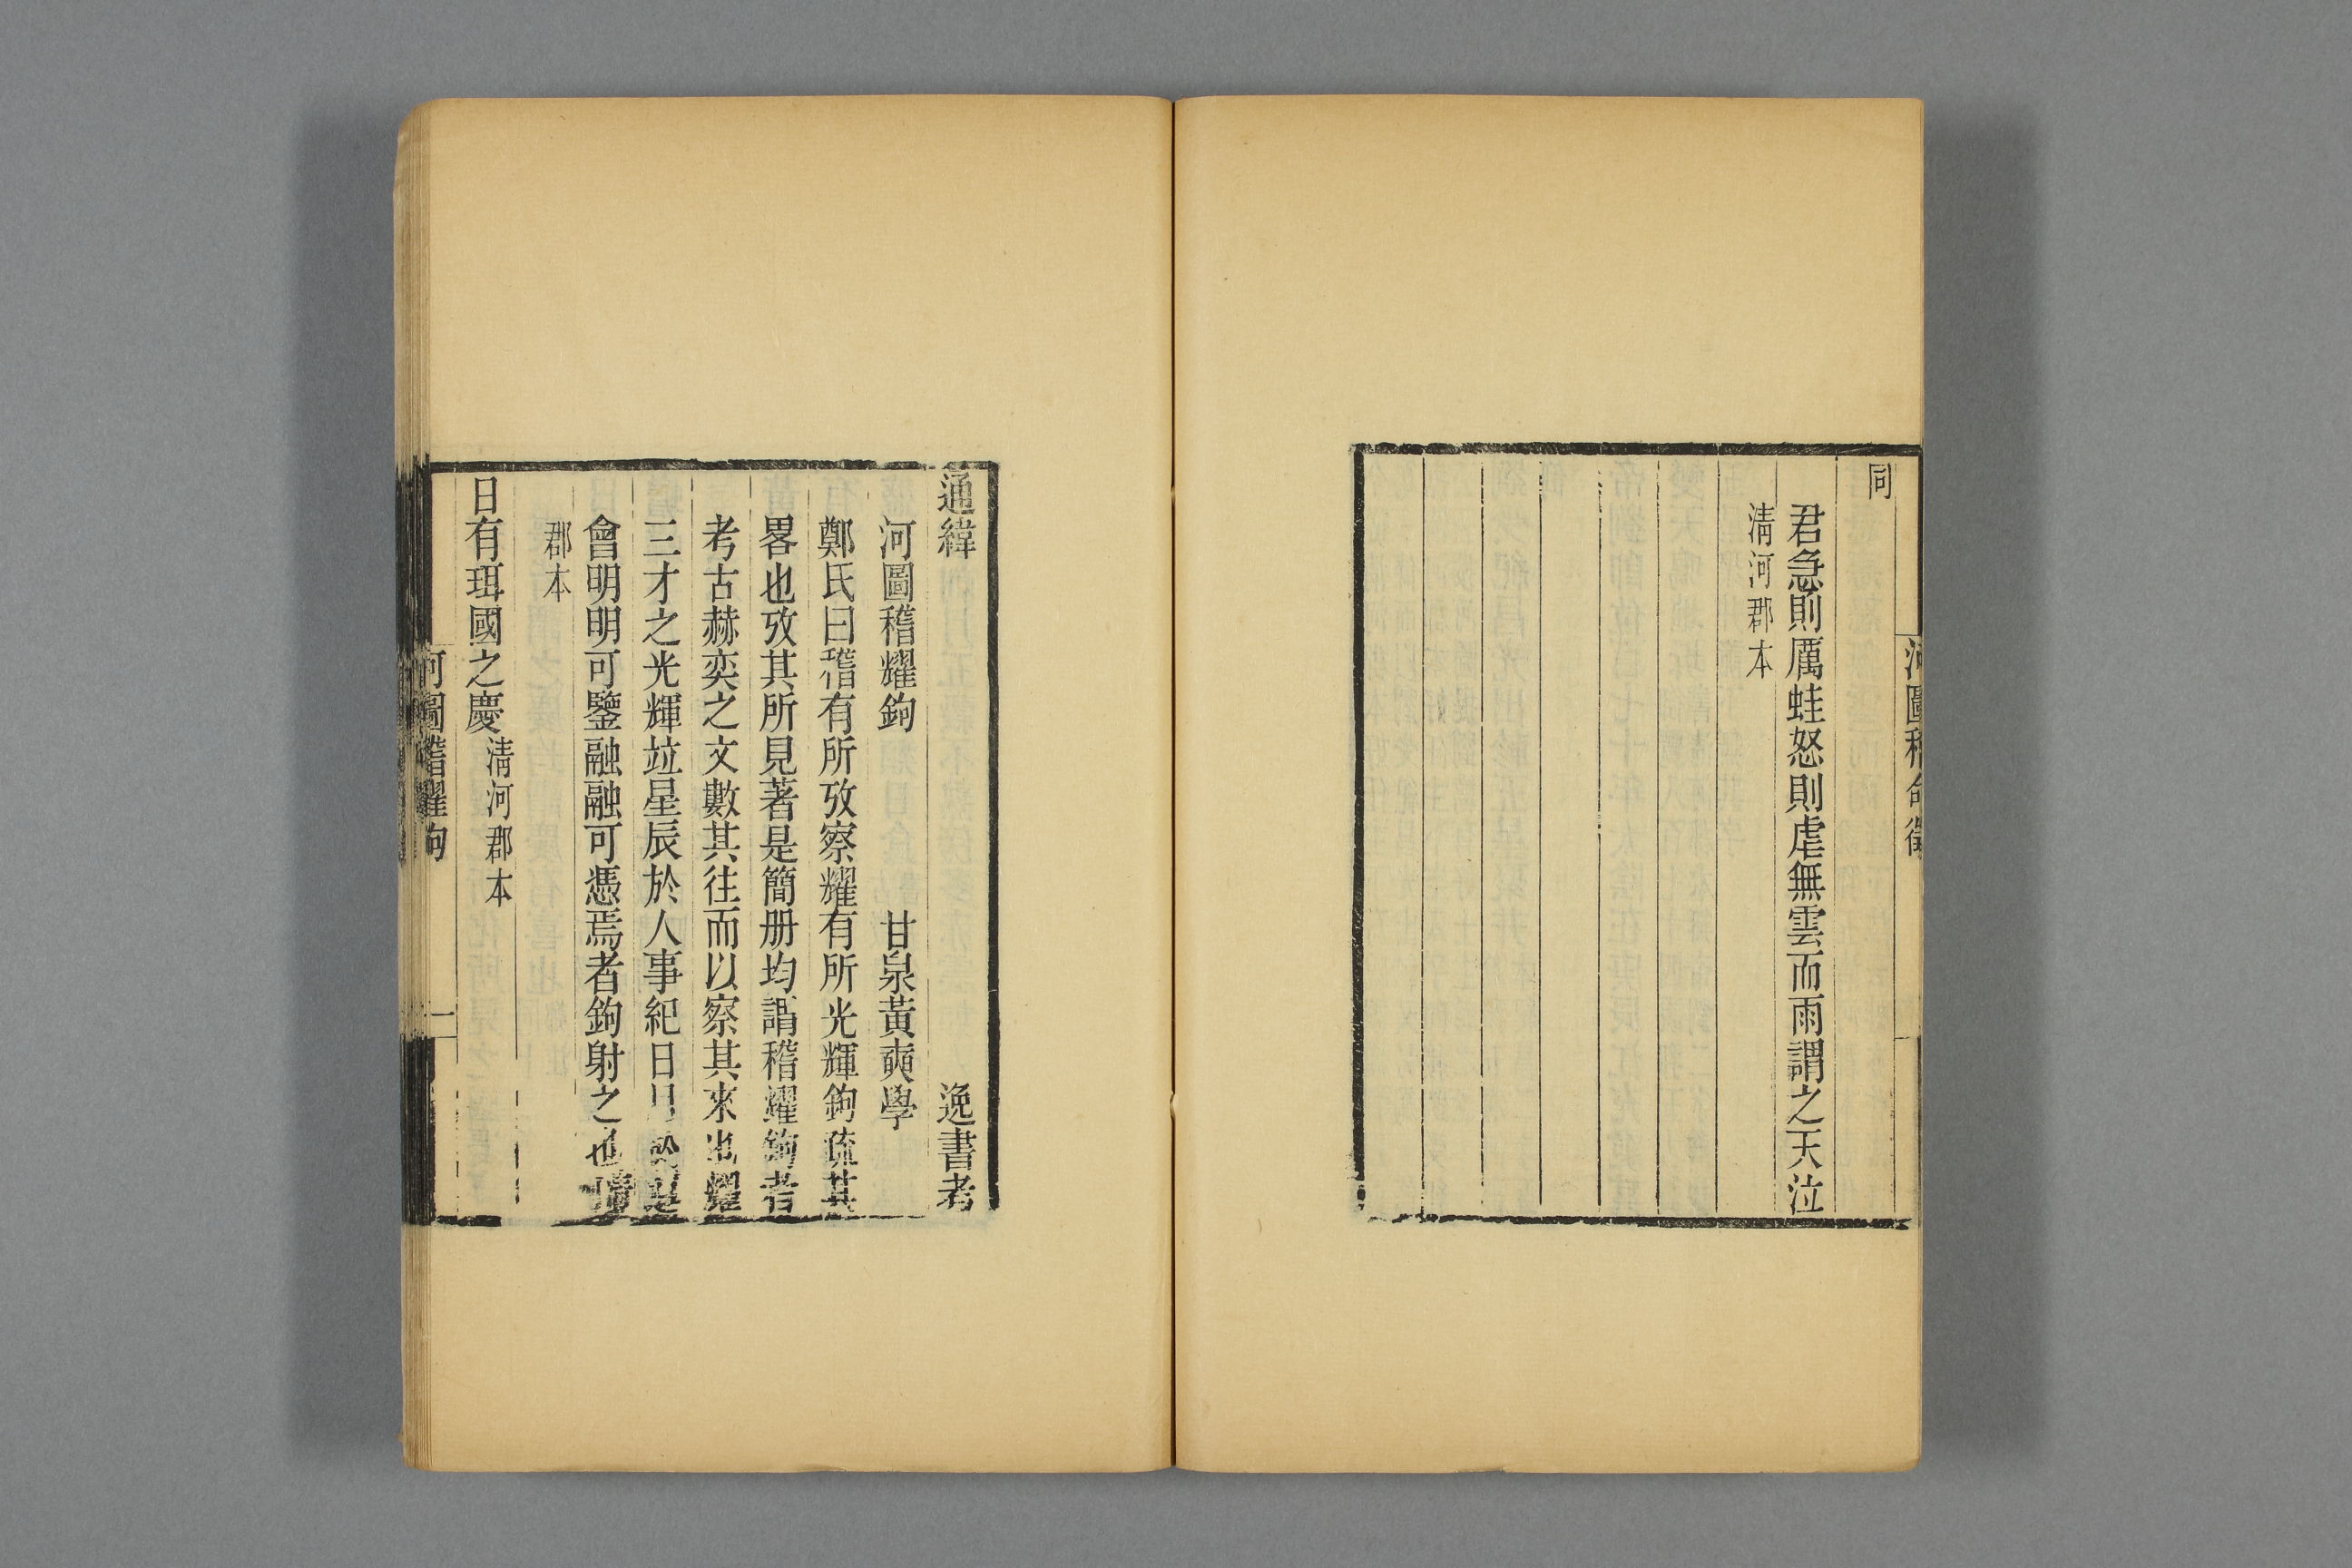 河圖稽命徵
同
君急則厲蛙怒則虐無雲而雨謂之天泣
淸河郡本
通緯 逸書考
河圖稽耀鉤 甘泉黃奭學
鄭氏曰稽有所攷察耀有所光輝鉤疏其
畧也攷其所見著是簡册均謂稽耀鉤者
考古赫奕之文數其往而以察其來也耀
三才之光輝竝星星辰於人事紀日月
會明明可鑒融融可憑焉者鉤射之也淸
郡本
日有珥國之慶淸河郡本
河圖稽耀鉤
一